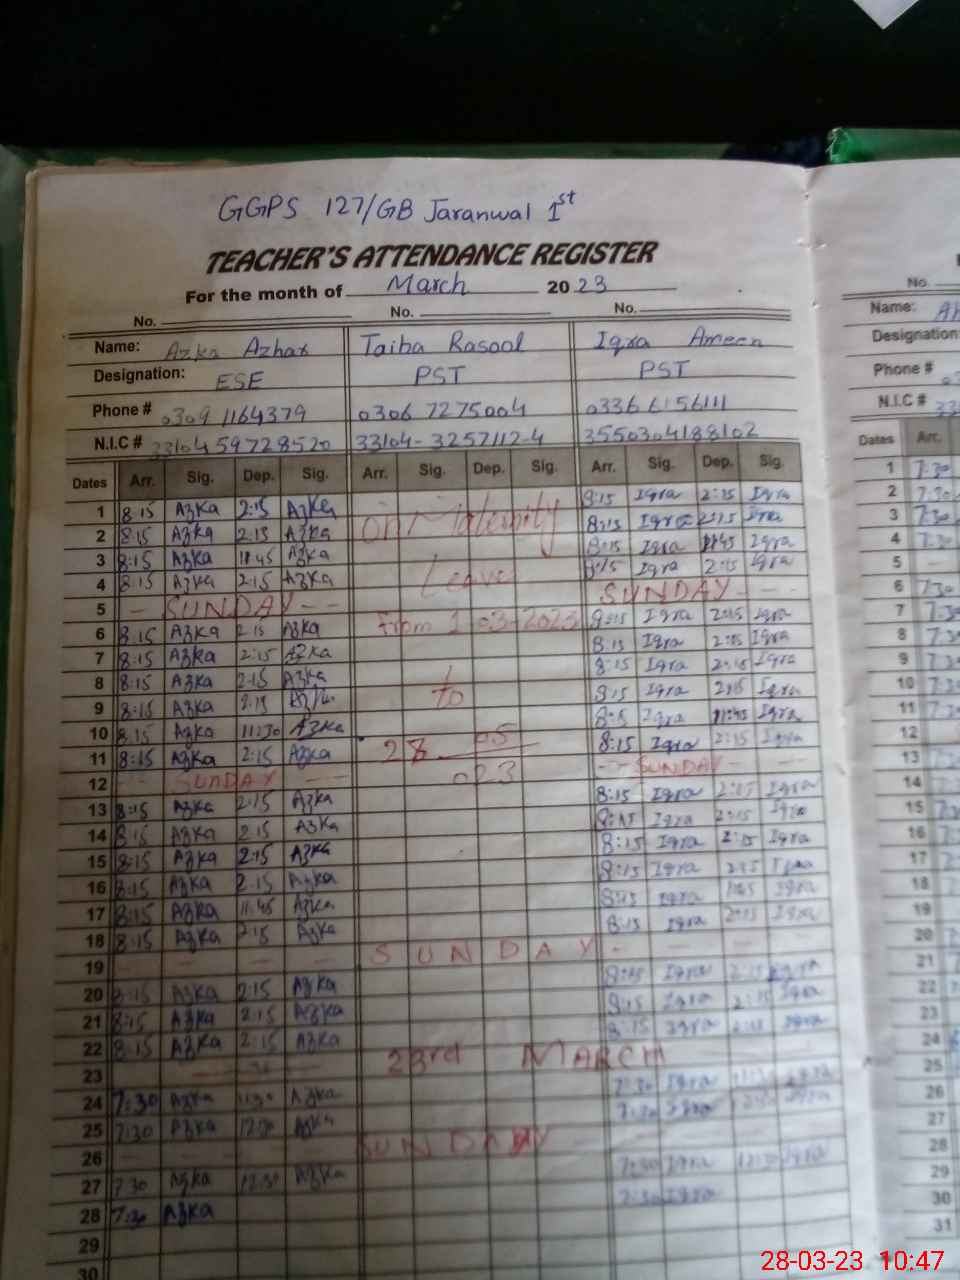 GGPS 127/GB Jaranwal 1st
TEACHER'S ATTENDANCE REGISTER
For the month of March 2023
No. No. No. No.
Name: Azka Azhar Taiba Rasool Iqra Ameen Name:
Designation: ESE PST PST Designation:
Phone # 0309 1164379 0306 7275004 0336 6156111 Phone #
N.I.C # 33104 59728520 33104-3257112-4 3550304188102 N.I.C #
Dates Arr. Sig. Dep. Sig. Arr. Sig. Dep. Sig. Arr. Sig. Dep. Sig. Dates Arr.
1 8:15 Azka 2:15 Azka on Maternity 8:15 Iqra 2:15 Iqra 1 7:30
2 8:15 Azka 2:15 Azka 8:15 Iqra 2:15 Iqra 2 7:30
3 8:15 Azka 11:45 Azka Leave 8:15 Iqra 11:45 Iqra 3 7:30
4 8:15 Azka 2:15 Azka 8:15 Iqra 2:15 Iqra 4 7:30
5 - SUNDAY - - SUNDAY - - - 5
6 8:15 Azka 2:15 Azka from 1-03-2023 8:15 Iqra 2:15 Iqra 6 7:30
7 8:15 Azka 2:15 Azka 8:15 Iqra 2:15 Iqra 7 7:30
8 8:15 Azka 2:15 Azka 8:15 Iqra 2:15 Iqra 8 7:30
9 8:15 2:15 to 8:15 Iqra 2:15 Iqra 9 7:30
10 8:15 Azka 11:30 Azka Iqra 11:45 Iqra 10 7:30
11 8:15 Azka 2:15 Azka 28 05 8:15 Iqra 2:15 Iqra 11
12 - - SUNDAY - 023 - - SUNDAY - - 12
13 8:15 Azka 2:15 Azka 8:15 Iqra 2:15 Iqra 13
14 8:15 Azka 2:15 Azka 8:15 Iqra 2:15 Iqra 14
15 8:15 Azka 2:15 Azka 8:15 Iqra 2:15 Iqra 15
16 8:15 Azka 2:15 Azka 8:15 Iqra 2:15 Iqra 16
17 8:15 Azka 11:45 Azka 8:15 Iqra 11:45 Iqra 17
18 8:15 Azka 2:15 Azka 8:15 Iqra 2:15 Iqra 18
19 - - - - SUNDAY - - - - 19
20 8:15 Azka 2:15 Azka 8:15 Iqra 2:15 Iqra 20
21 8:15 Azka 2:15 Azka 8:15 Iqra 2:15 Iqra 21
22 8:15 Azka 2:15 Azka 8:15 Iqra 2:15 Iqra 22
23 23rd MARCH 23
24 7:30 Azka 11:30 Azka 7:30 Iqra Iqra 24
25 7:30 Azka 12:30 Azka 7:30 Iqra 12:30 Iqra 25
26 - - - - SUNDAY 26
27 7:30 Azka 12:30 Azka 7:30 Iqra 12:30 Iqra 27
28 7:30 Azka 7:30 Iqra 28
29 29
30 30
31
28-03-23 10:47